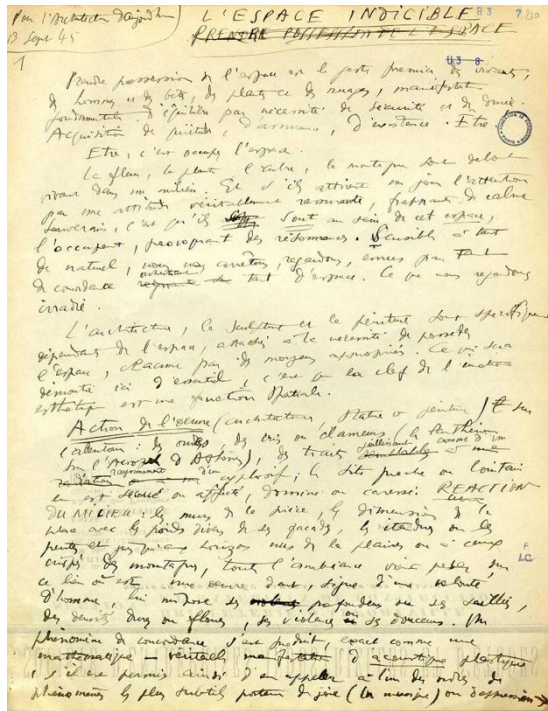 Pour l'Architecture d'Aujourd'hui
13 Sept 45
L'ESPACE INDICIBLE
PRENDRE POSSESSION DE L'ESPACE
B3 7
U3 8
1
Prendre possession de l'espace est le geste premier des vivants,
des hommes et des bêtes, des plantes et des nuages, manifestation
fondamentale d'équilibre et de durée.
Acquisition de d'existence. Etre
Etre, c'est occuper l'espace.
La fleur, la plante, l'arbre, la montagne sont debout
vivant dans un milieu. Et s'ils attirent un jour l'attention
par une attitude véritablement rassurante, de calme
souverain, c'est qu'ils sont au sein de cet espace,
l'occupent, provoquant des résonances. Sensible à tant
de naturel, nous nous arrêtons, regardons, émus par tant
de concordance orchestrant tant d'espace. Ce que nous regardons
irradie.
L'architecture, la sculpture et la peinture sont spécifiquement
dépendants de l'espace, attachés à la nécessité de posséder
l'espace, chacune par des moyens appropriés. Ce qui sera
démontré ici d'essentiel, c'est que la clef de l'émotion
esthétique est une fonction spatiale.
Action de l'œuvre (architecture, statue ou peinture) sur
l'alentour : des ondes, des cris ou clameurs (le Parthénon
sur l'Acropole d'Athènes), des traits jaillissant comme d'un
rayonnement d'un explosif ; le site proche ou lointain
en est secoué ou affecté, dominé ou caressé. REACTION
DU MILIEU : les murs de la pièce, les dimensions de la
place avec les poids divers de ses façades, les étendues ou les
pentes et jusqu'aux horizons nus de la plaine ou à ceux
crispés des montagnes, toute l'ambiance vient peser sur
ce lieu où est une œuvre d'art, signe d'une volonté
d'homme, lui impose ses profondeurs ou ses saillies,
ses densités dures ou floues, ses violences ou ses douceurs. Un
phénomène de concordance s'est produit, exact comme une
mathématique – véritable manifestation d'acoustique plastique
s'il est permis ainsi d'en appeler à l'un des ordres de
phénomènes les plus subtils porteur de joie (la musique) ou d'oppression
F
LC